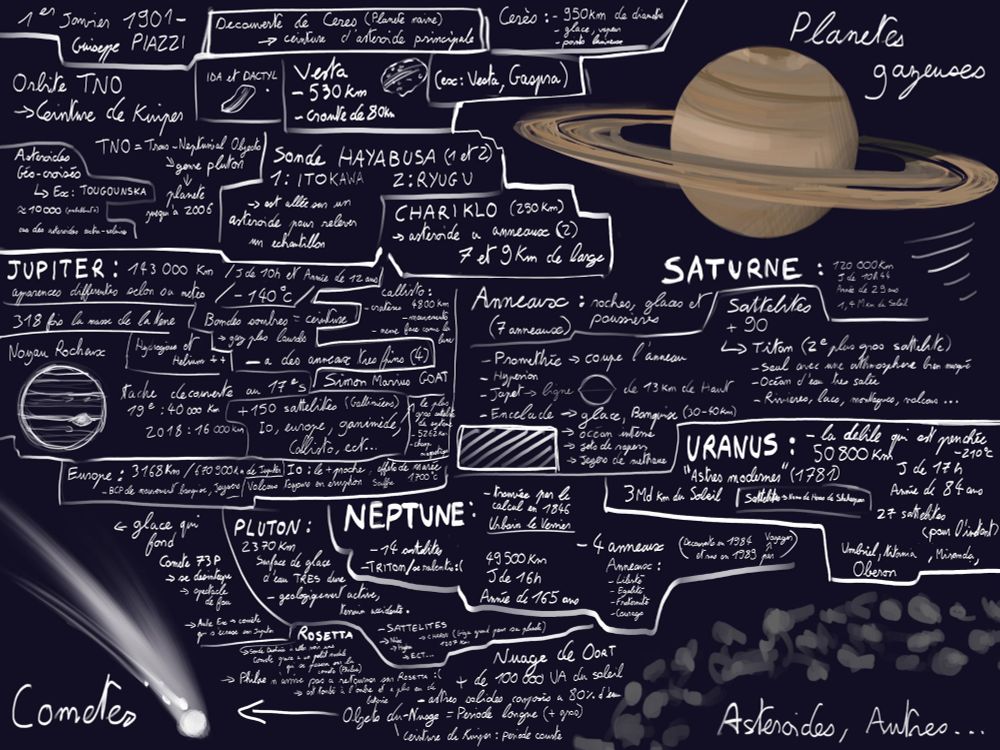 1er Janvier 1901-
Guisepe PIAZZI
Decouverte de Ceres (Planete naine)
→ ceinture d'asteroide principale
Cerès : - 950km de diametre
- glace, vapeur
Planetes
gazeuses
Orbite TNO
→ Ceinture de Kuiper
IDA et DACTYL
Vesta
- 530 km
- croute de 80km
(ex: Vesta, Gaspra)
Asteroides
Géo-croisés
↳ Ex: TOUGOUNSKA
≈ 10 000
TNO = Trans-Neptunial Objects
genre pluton
planete
jusqu'à 2006
Sonde HAYABUSA (1 et 2)
1: ITOKAWA 2: RYUGU
→ est allée sur un
asteroide pour relever
un echantillon
CHARIKLO (250 km)
→ asteroide a anneaux (2)
7 et 9 km de large
JUPITER : 143 000 Km / J de 10h et Année de 12 ans
apparences differentes selon sa meteo
/ -140°c /
318 fois la masse de la terre
Bandes sombres = ceinture
→ gaz plus lourds
Callisto :
- cratères 4800 km
- mouvements
- meme face comme la lune
Noyau Rocheux
Hydrogene et
Helium ++
- a des anneaux tres fins (4)
Simon Marius GOAT
tache decouverte au 17e s
19e : 40 000 km
2018 : 16 000 km
+150 sattelites (Galiliéens)
Io, europe, ganimède,
Callisto, ect...
le plus
gros satelite
du systeme
- 5262 km
Europe : 3168 Km / 670 900 km de Jupiter
Io : le + proche, effets de marée
Volcans toujours en eruption Souffre 1700°C
SATURNE :
120 000 Km
J de 10h44
Année de 29 ans
1,4 M km du Soleil
Anneaux : roches, glaces et
poussières
(7 anneaux)
Sattelites
+ 90
↳ Titan (2e plus gros sattelite)
- Seul avec une athmosphere bien marqué
- Océan d'eau tres salée
- Rivières, lacs, montagnes, volcans ...
- Promethée → coupe l'anneau
- Hyperion
- Japet → ligne de 13 km de Haut
- Encelade → glace, Banquise (30-40 km)
→ océan interne
→ jets de vapeur
→ Jeysers de methane
URANUS : - la debile qui est penchée
50 800 Km -210°C
"Astres modernes" (1781)
J de 17h
Année de 84 ans
3 Md km du Soleil
27 sattelites
(pour l'instant)
Umbriel, Titania, Miranda,
Oberon
NEPTUNE :
- trouvée par le
calcul en 1846
Urbain le Verrier
- 14 satelites
- TRITON / se ralentis :(
49 500 Km
J de 16h
Année de 165 ans
- 4 anneaux
(Decouverts en 1984
et vus en 1989 par Voyager 2)
Anneaux :
- Liberté
- Egalité
- Fraternité
- Courage
PLUTON :
2370 Km
Surface de glace
d'eau TRES dure
- geologiquement active,
terrain accidenté.
- SATTELITES
→ Nix
→ Hydra
→ ECT...
← glace qui
fond
Comete 73P
→ se desintegre
→ spectacle
de fou
ROSETTA
→ Philae n'arrive pas a retourner sur Rosetta :(
Nuage de OORT
+ de 100 000 UA du soleil
- astres solides composés a 80% d'eau
Objets du Nuage = Periode longue (+ gros)
Ceinture de Kuiper : periode courte
Cometes
Asteroides, Autres...